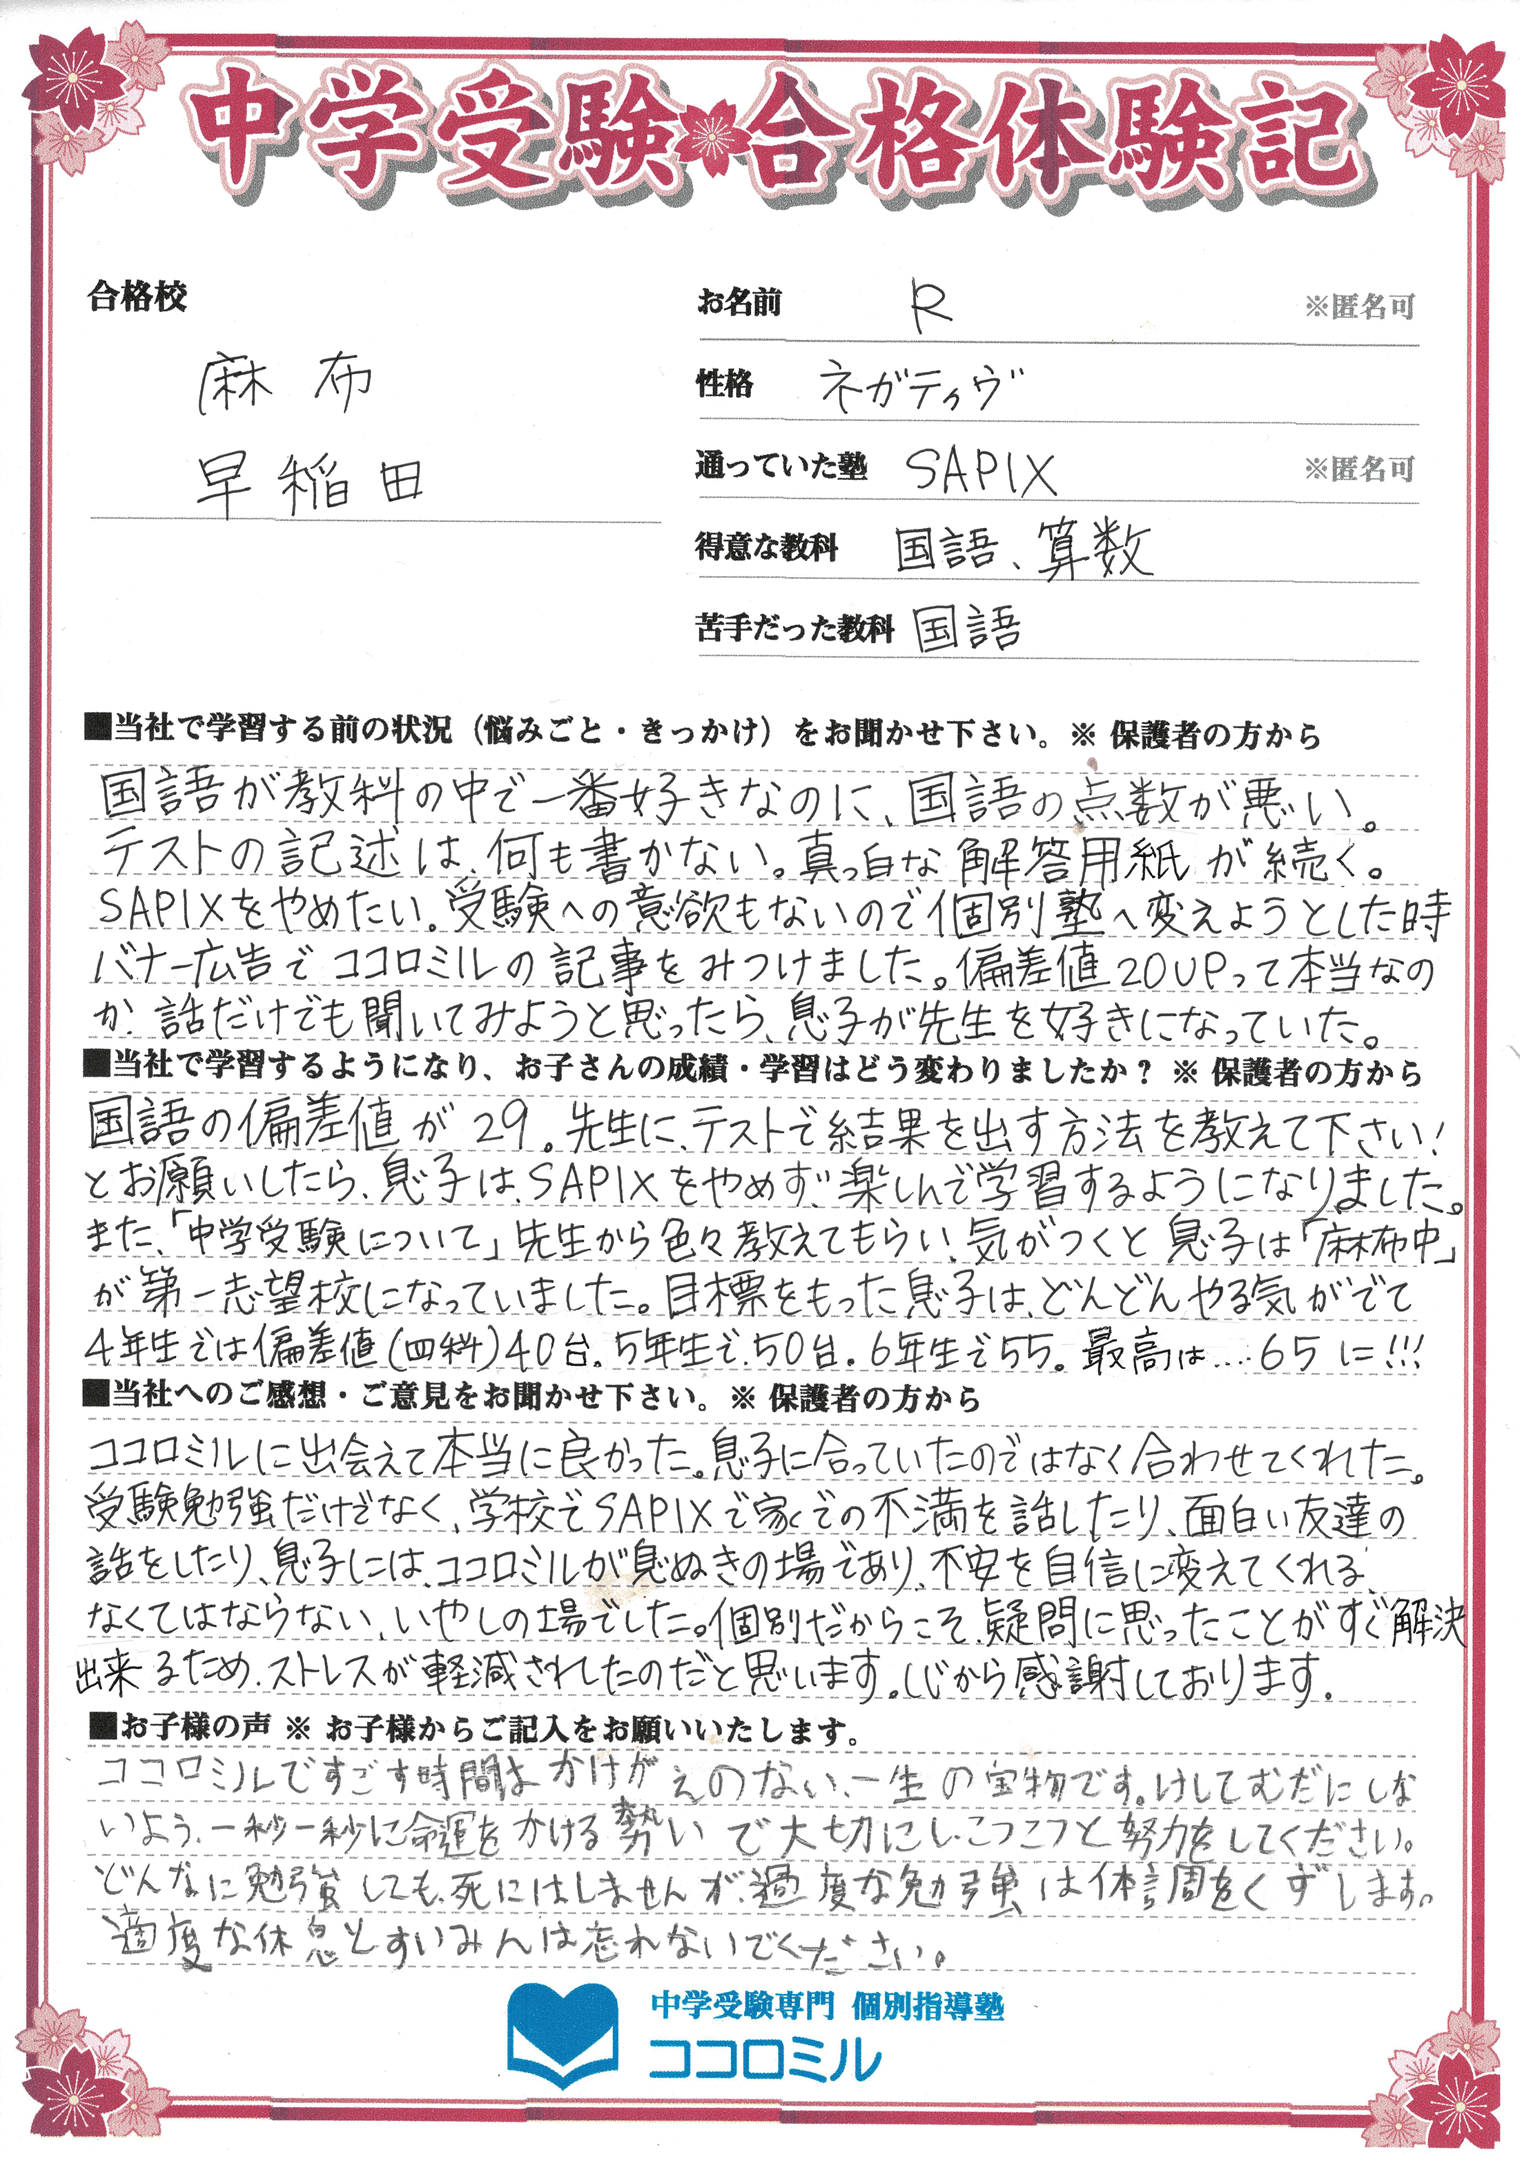 中学受験合格体験記
合格校
麻布
早稲田
お名前 R ※匿名可
性格 ネガティヴ
通っていた塾 SAPIX ※匿名可
得意な教科 国語、算数
苦手だった教科 国語
■当社で学習する前の状況（悩みごと・きっかけ）をお聞かせ下さい。※ 保護者の方から
国語が教科の中で一番好きなのに、国語の点数が悪い。
テストの記述は、何も書かない。真っ白な解答用紙が続く。
SAPIXをやめたい。受験への意欲もないので個別塾へ変えようとした時
バナー広告でココロミルの記事をみつけました。偏差値20UPって本当なの
か、話だけでも聞いてみようと思ったら、息子が先生を好きになっていた。
■当社で学習するようになり、お子さんの成績・学習はどう変わりましたか？ ※ 保護者の方から
国語の偏差値が29。先生に、テストで結果を出す方法を教えて下さい！
とお願いしたら、息子は、SAPIXをやめず、楽しんで学習するようになりました。
また、「中学受験について」先生から色々教えてもらい、気がつくと息子は「麻布中」
が第一志望校になっていました。目標をもった息子は、どんどんやる気がでて
4年生では偏差値(四科)40台。5年生で、50台。6年生で55。最高は....65に!!!
■当社へのご感想・ご意見をお聞かせ下さい。※ 保護者の方から
ココロミルに出会えて本当に良かった。息子に合っていたのではなく合わせてくれた。
受験勉強だけでなく、学校でSAPIXで家での不満を話したり、面白い友達の
話をしたり、息子には、ココロミルが息ぬきの場であり、不安を自信に変えてくれる、
なくてはならない、いやしの場でした。個別だからこそ、疑問に思ったことがすぐ解決
出来るため、ストレスが軽減されしたのだと思います。心から感謝しております。
■お子様の声 ※ お子様からご記入をお願いいたします。
ココロミルですごす時間はかけがえのない、一生の宝物です。けしてむだにしな
いよう、一秒一秒に命運をかける勢いで大切にし、こつこつと努力をしてください。
どんなに勉強しても、死にはしませんが、過度な勉強は体調をくずします。
適度な休息とすいみんは忘れないでください。
中学受験専門 個別指導塾
ココロミル